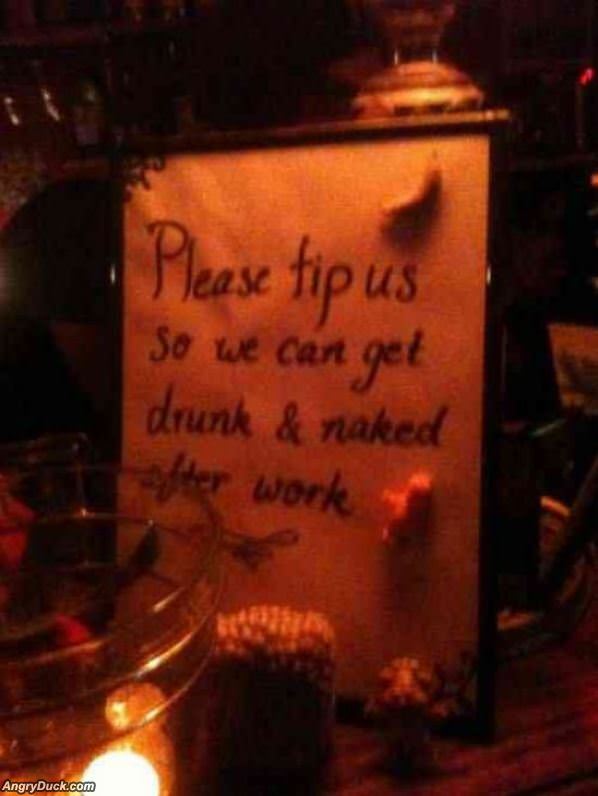 Please tip us
so we can get
drunk & naked
after work
AngryDuck.com